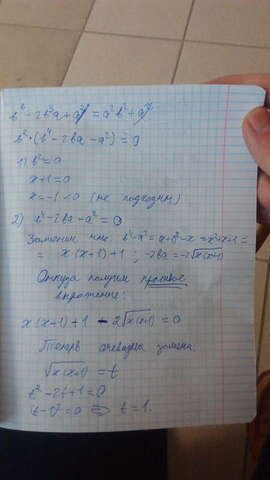 b⁶ - 2b³a + a² = a²b² + a²
b² · (b⁴ - 2ba - a²) = 0
1) b² = 0
x+1 = 0
x = -1 < 0 (не подходит)
2) b⁴ - 2ba - a² = 0
Заметим что b⁴ - a² = (x+1)² - x = x² + x + 1 =
= x(x+1)+1 ; -2ba = -2√x(x+1)
Откуда получим простое
выражение:
x(x+1)+1 - 2√x(x+1) = 0
Теперь очевидна замена
√x(x+1) = t
t² - 2t + 1 = 0
(t-1)² = 0 ⇒ t = 1.